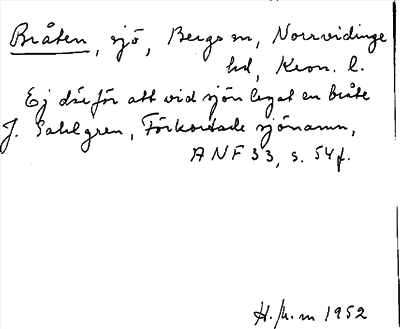 Bråten, sjö, Bergs sn, Norrvidinge
hd, Kron. l.
Ej därför att vid sjön legat en bråte
J. Sahlgren, Förkortade sjönamn,
ANF 33, s. 54 f.
1952